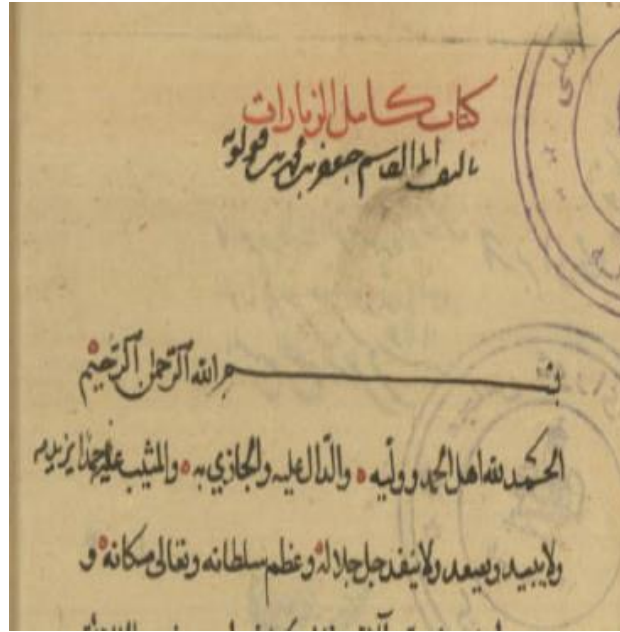 كتاب كامل الزيارات
تاليف ابي القاسم جعفر بن محمد بن قولويه
بسم الله الرحمن الرحيم
الحمد لله اهل الحمد ووليه والدال عليه والمجازي به والمثيب عليه حمدا يزيد
ولا يبيد ويصعد ولا ينفد جل جلاله وعظم سلطانه وتعالى مكانه و